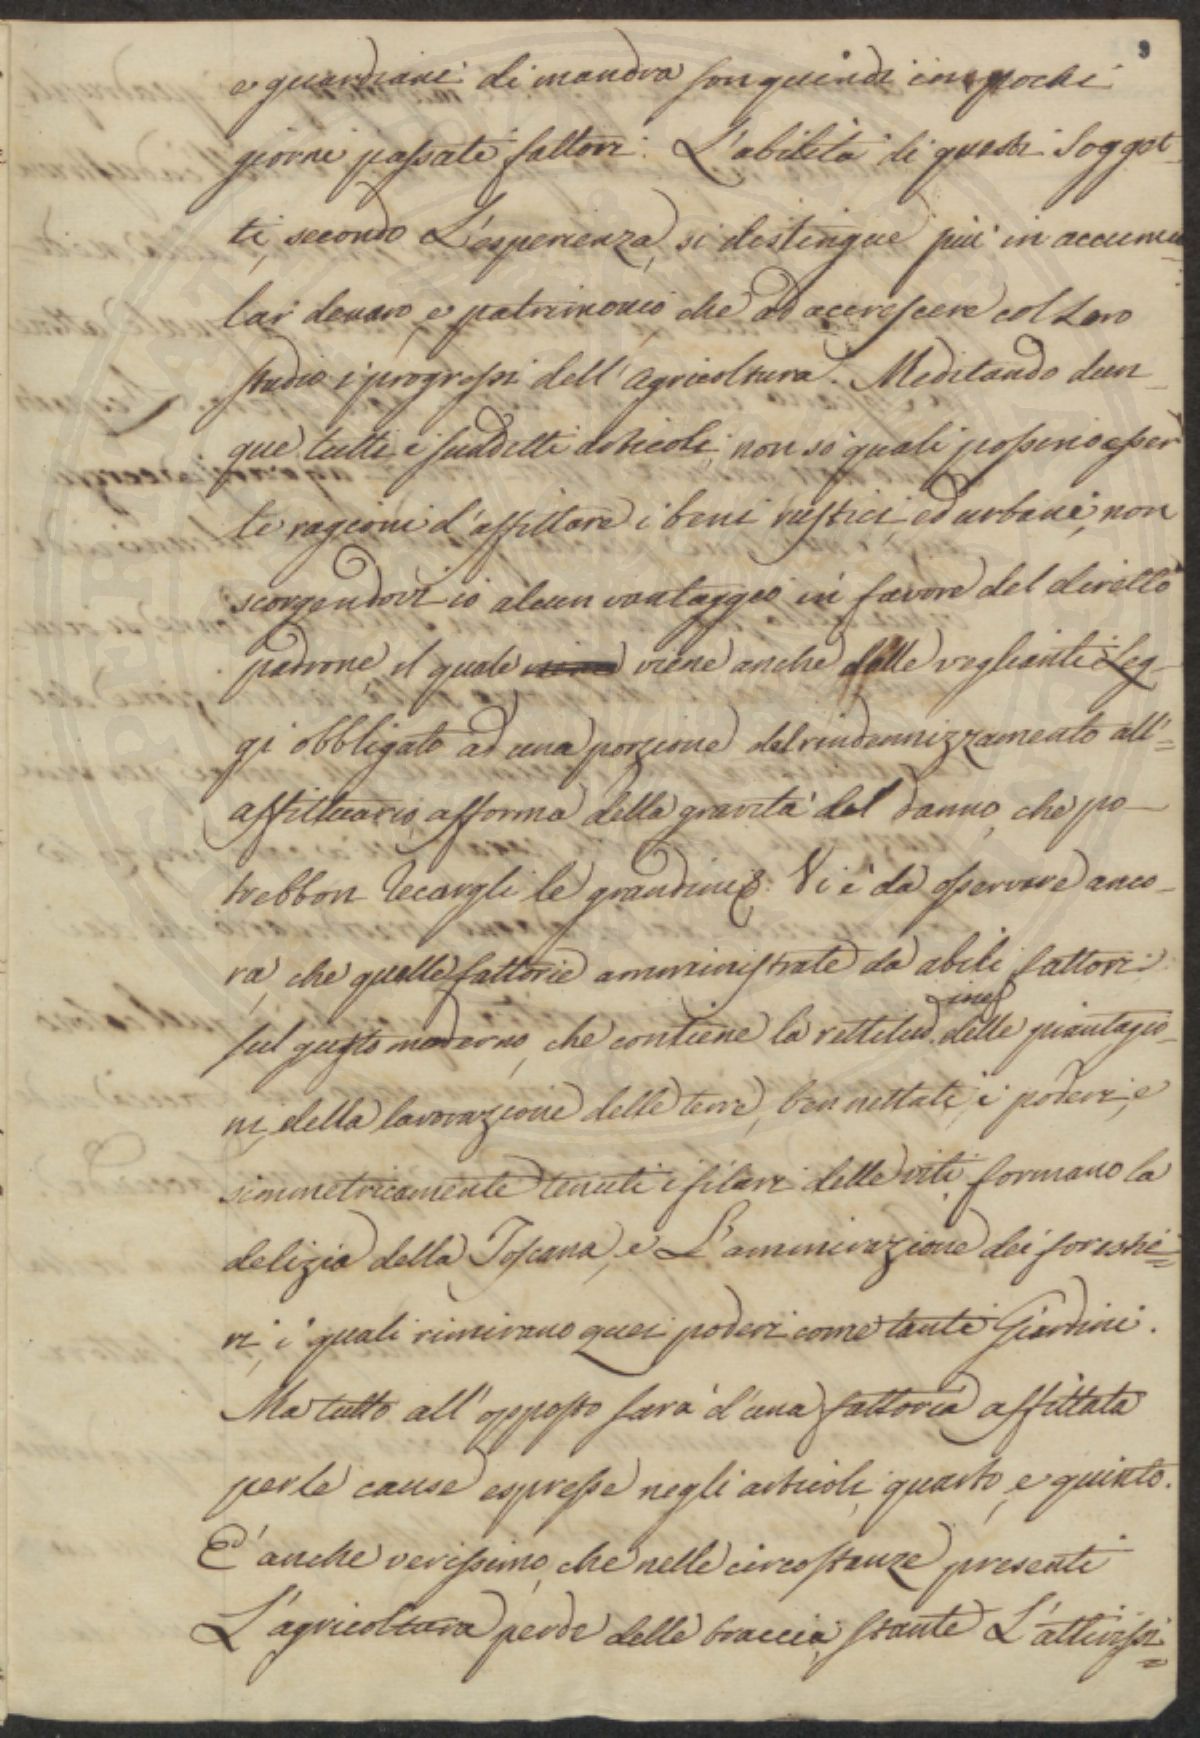 9
e guardiani di mandra son quindi in pochi
giorni passati fattori. L'abilità di questi Sogget-
ti, secondo L'esperienza, si distingue più in accumu=
lar denaro, e patrimonio, che ad accrescere col Loro
studio i progressi dell'agricoltura. Meditando dun-
que tutti i suddetti articoli, non so quali possino esser
le ragioni d'affittare i beni rustici, ed urbani, non
scorgendovi io alcun vantaggio in favore del diretto
padrone, il quale viene anche dalle veglianti Leg-
gi obbligato ad una porzione del rindennizzamento all'=
affittuario, afforma della gravità del danno, che po-
trebbon recargli le grandini. Vi è da osservare anco-
ra, che quelle fattorie amministrate da abili fattori
sul gusto moderno, che contiene la rettitudine delle piantagio-
ni, della lavorazione delle terre, ben nettati i poderi, e
simmetricamente tenuti i filari delle viti formano la
delizia della Toscana, e L'ammirazione dei forestie=
ri, i quali rimirano quei poderi come tanti Giardini.
Ma tutto all'opposto sarà d'una fattoria affittata
per le cause espresse negli articoli quarto, e quinto.
E' anche verissimo, che nelle circostanze presenti
L'agricoltura perde delle braccia, stante L'attivissi=